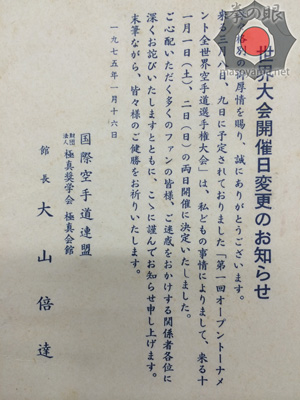 世界大会開催日変更のお知らせ
別の御厚情を賜り、誠にありがとうございます。
来る 月八日、九日に予定されておりました「第一回オープントーナメ
ント全世界空手道選手権大会」は、私どもの事情によりまして、来る十
一月一日(土)、二日(日)の両日開催に決定いたしました。
ご心配いただく多くのファンの皆様、ご迷惑をおかけする関係者各位に
深くお詫びいたしますとともに、こゝに謹んでお知らせ申し上げます。
末筆ながら、皆々様のご健勝をお祈りいたします。
一九七五年一月十六日
国際空手道連盟
財団法人 極真奨学会 極真会館
館長 大山倍達
拳の眼